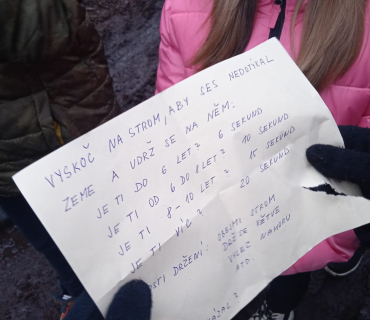 VYSKOČ NA STROM, ABY SES NEDOTÝKAL
ZEMĚ A UDRŽ SE NA NĚM:
JE TI DO 6 LET? 6 SEKUND
JE TI OD 6 DO 8 LET? 10 SEKUND
JE TI 8-10 LET? 15 SEKUND
JE TI VÍC? 20 SEKUND
DRŽENÍ: OBEJMI STROM
DRŽ SE VĚTVE
VYLEZ NAHORU
ATD.